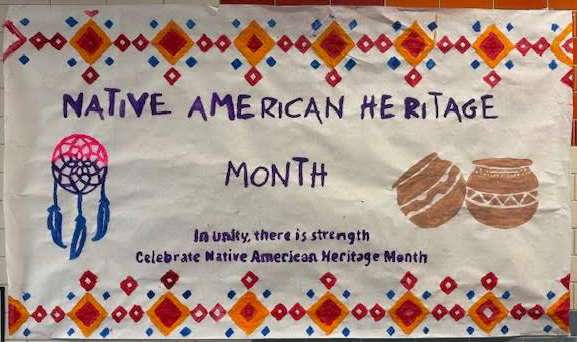 NATIVE AMERICAN HERITAGE
MONTH
In unity, there is strength
Celebrate Native American Heritage Month